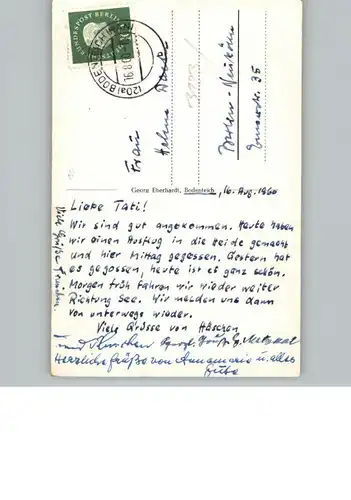 DEUTSCHE BUNDESPOST BERLIN
(20a) BODENTEICH
Frau
Helma
Berlin-Neukölln
35
Georg Eberhardt, Bodenteich
, 10. Aug. 1960
Liebe Tati!
Wir sind gut angekommen. Heute haben
wir einen Ausflug in die Heide gemacht
und hier Mittag gegessen. Gestern hat
es gegossen, heute ist es ganz schön.
Morgen früh fahren wir wieder weiter
Richtung See. Wir melden uns dann
von unterwegs wieder.
Viele Grüsse von Häschen
und
Herzliche Grüße von Annemarie u. alles
Gute
Viele Grüße